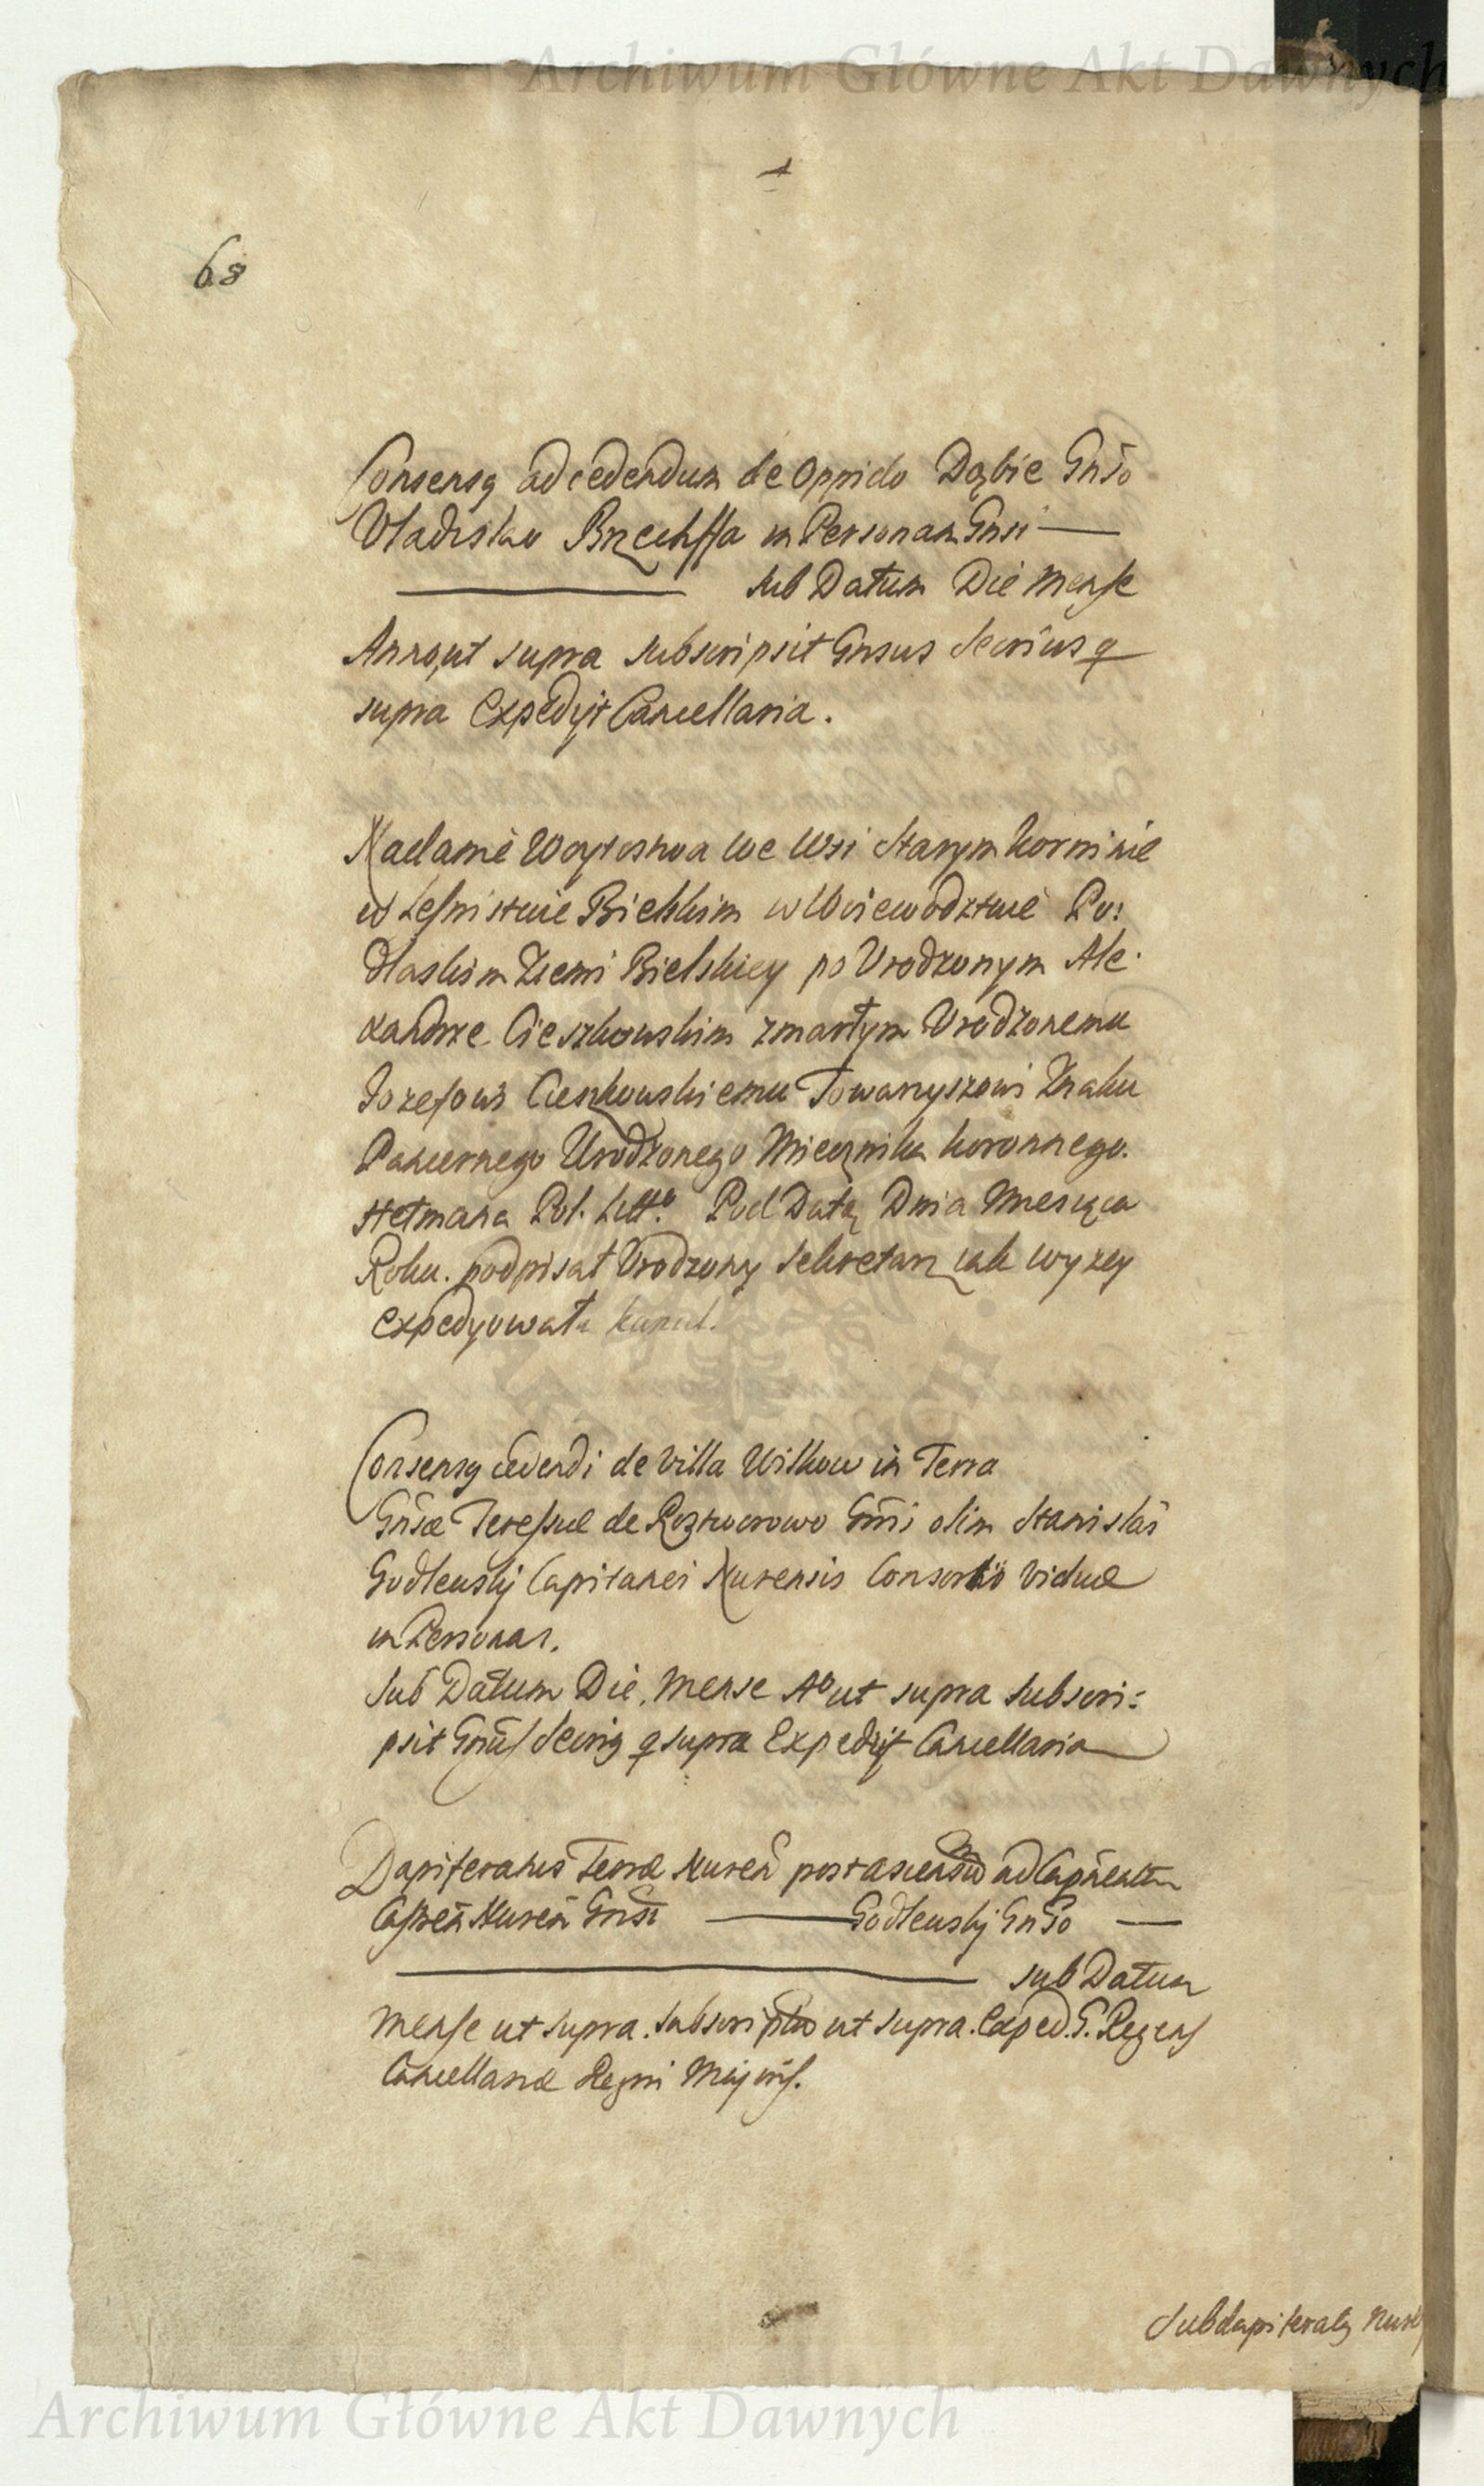 Archiwum Główne Akt Dawnych
68
Consensq ad cedendum de Oppido Dąbie Gnso
Vladislao Brzechffa in Personam Gnsi
sub Datum Die Mense
Anno ut supra subscripsit Gnsus Secrius q
supra Expedyit Cancellaria.
Nadanie Woytostwa we Wsi Starym Korninie
w Lesnistwie Bielskim w Woiewodztwie Po:
dlaskim Ziemi Bielskiey po Urodzonym Ale.
xandrze Cieszkowskim zmarłym Urodzonemu
Jozefowi Cieszkowskiemu Towarzyszowi Znaku
Pancernego Urodzonego Miecznika koronnego.
Hetmana Pol. Litt.º Pod Datą Dnia Mesiąca
Roku. podpisał Urodzony Sekretarz iak wyzey
expedyowała kancel.
Consensq cedendi de Villa Wilkow in Terra
Gnsæ Teressiæ de Roztworowo Gnsi olim Stanislai
Godlewskij Capitanei Nurensis Consorti viduæ
in Personam.
Sub Datum Die, Mense Aº ut supra subscri:
psit Gnus Secriq q supra Expedijt Cancellaria
Dapiferatus Terræ Nuren post ascensũ ad Capneatum
Castren Nuren Gnsi Godlewskij Gnso
sub Datum
Mense ut supra. subscriptio ut supra. Exped. G. Regens
Cancellariæ Regni Majoris.
Subdapiferatq Nuren
Archiwum Główne Akt Dawnych